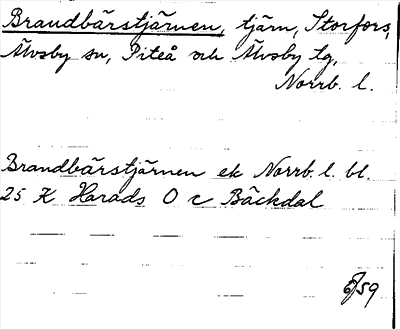 Brandbärstjärnen, tjärn, Storfors,
Älvsby sn, Piteå och Älvsby tg,
Norrb. l.
Brandbärstjärnen ek Norrb. l. bl.
25 K Harads O c Bäckdal
6/59